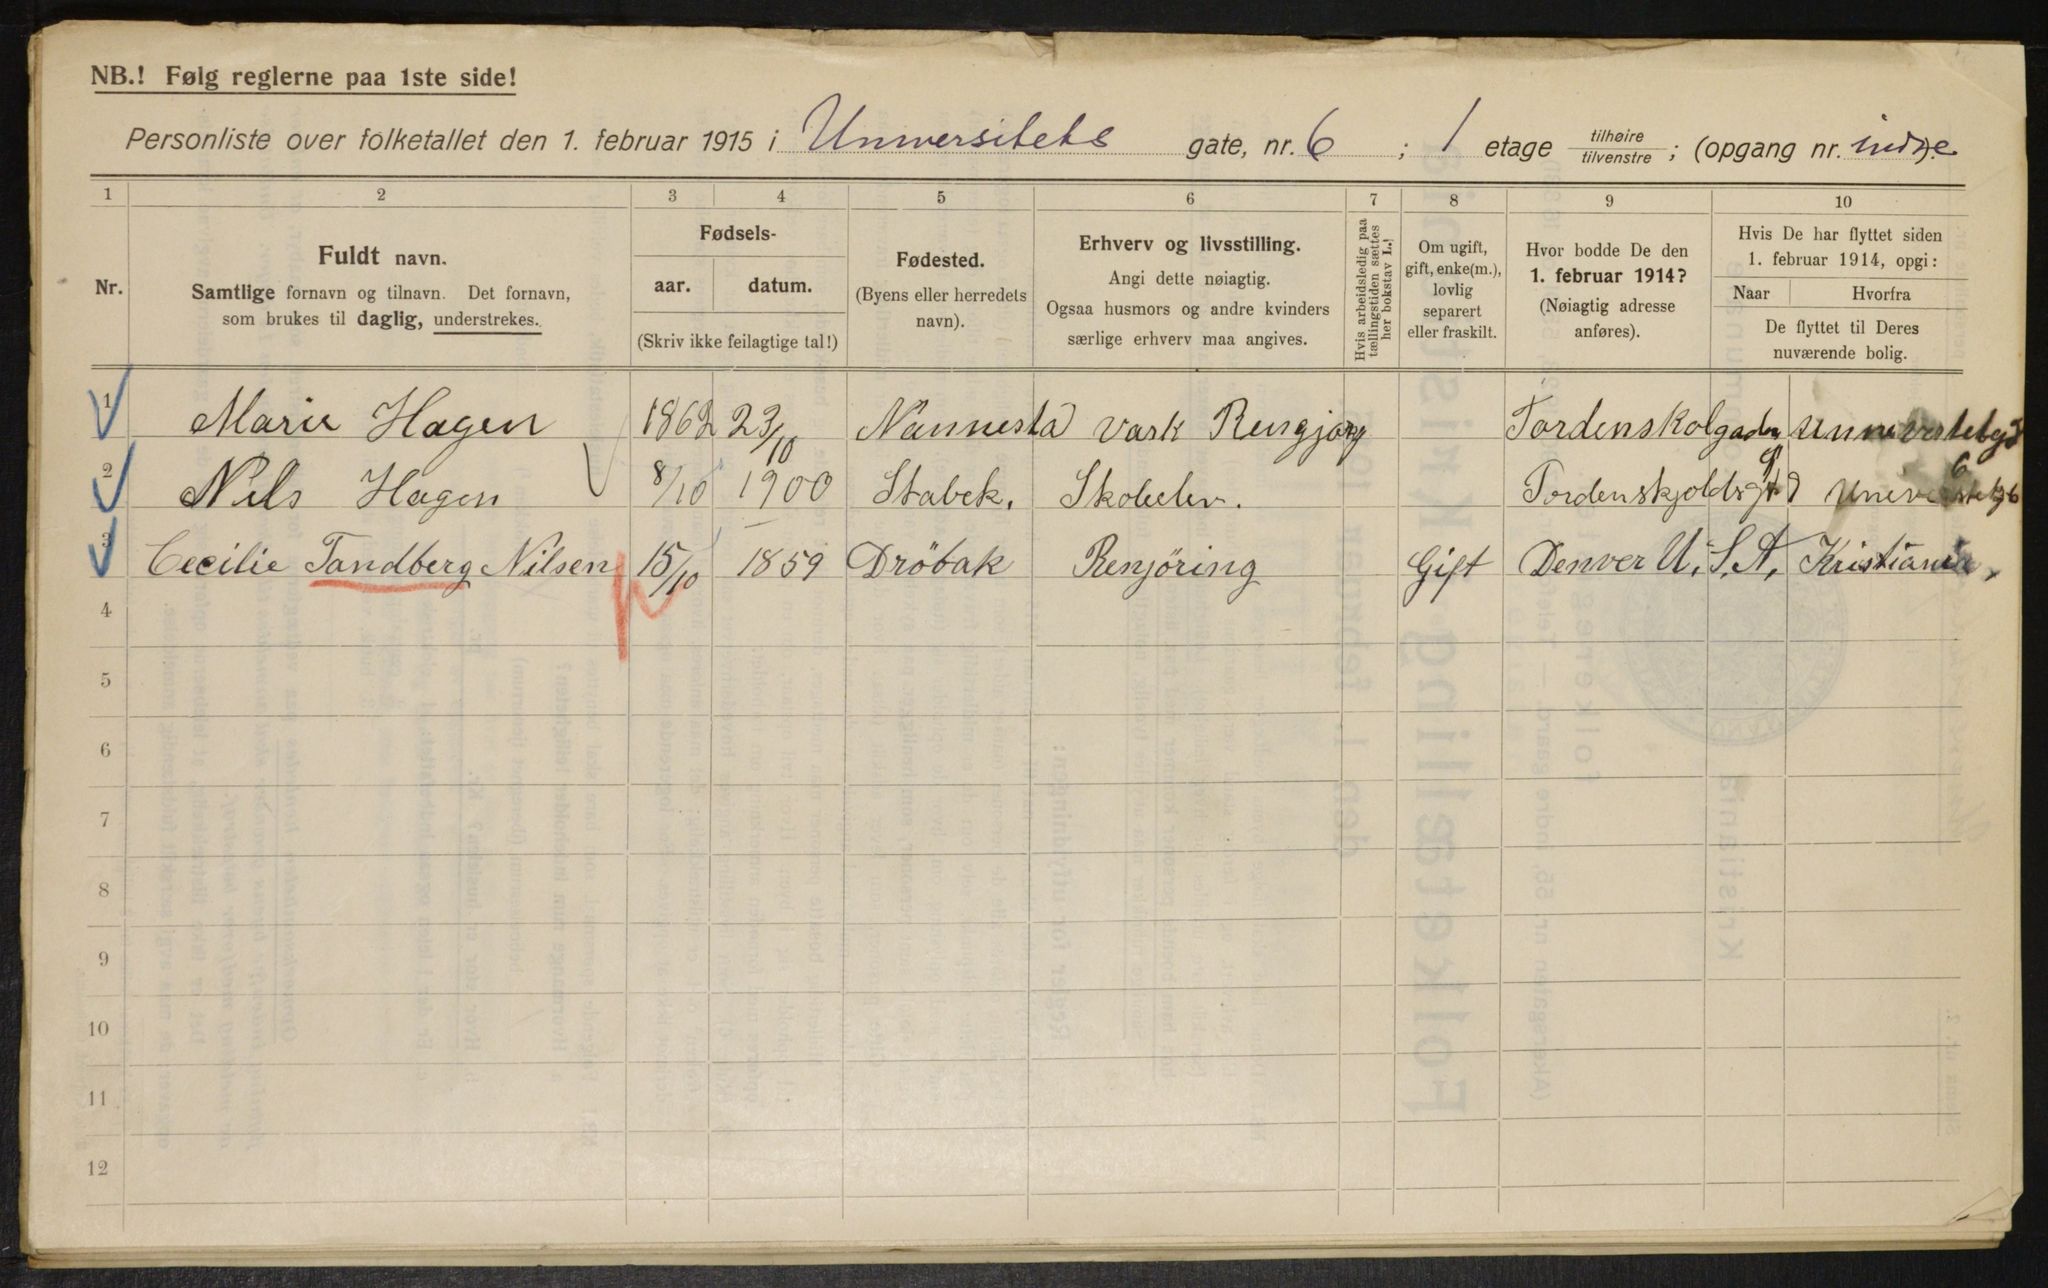 NB.! Følg reglerne paa 1ste side!
Personliste over folketallet den 1. februar 1915 i Universitets gate, nr. 6 ; 1 etage tilhøire / tilvenstre ; (opgang nr. indre).
1 2 3 4 5 6 7 8 9 10
Nr.
Fuldt navn.
Samtlige fornavn og tilnavn. Det fornavn,
som brukes til daglig, understrekes.
Fødsels-
aar. datum.
(Skriv ikke feilagtige tal!)
Fødested.
(Byens eller herredets
navn).
Erhverv og livsstilling.
Angi dette nøiagtig.
Ogsaa husmors og andre kvinders
særlige erhverv maa angives.
Hvis arbeidsledig paa
tællingstiden sættes
her bokstav L.!
Om ugift,
gift, enke(m.),
lovlig
separert
eller fraskilt.
Hvor bodde De den
1. februar 1914?
(Nøiagtig adresse
anføres).
Hvis De har flyttet siden
1. februar 1914, opgi:
Naar Hvorfra
De flyttet til Deres
nuværende bolig.
1 Marie Hagen 1862 23/10 Nannesta Vask Rengjørg Tordenskolgaden 9
2 Nils Hagen 8/10 1900 Stabek. Skoleelev. Tordenskjoldsgt 9
3 Cecilie Tandberg Nilsen 15/10 1859 Dröbak Renjöring Gift Denver U.S.A. Kristiania,
4
5
6
7
8
9
10
11
12